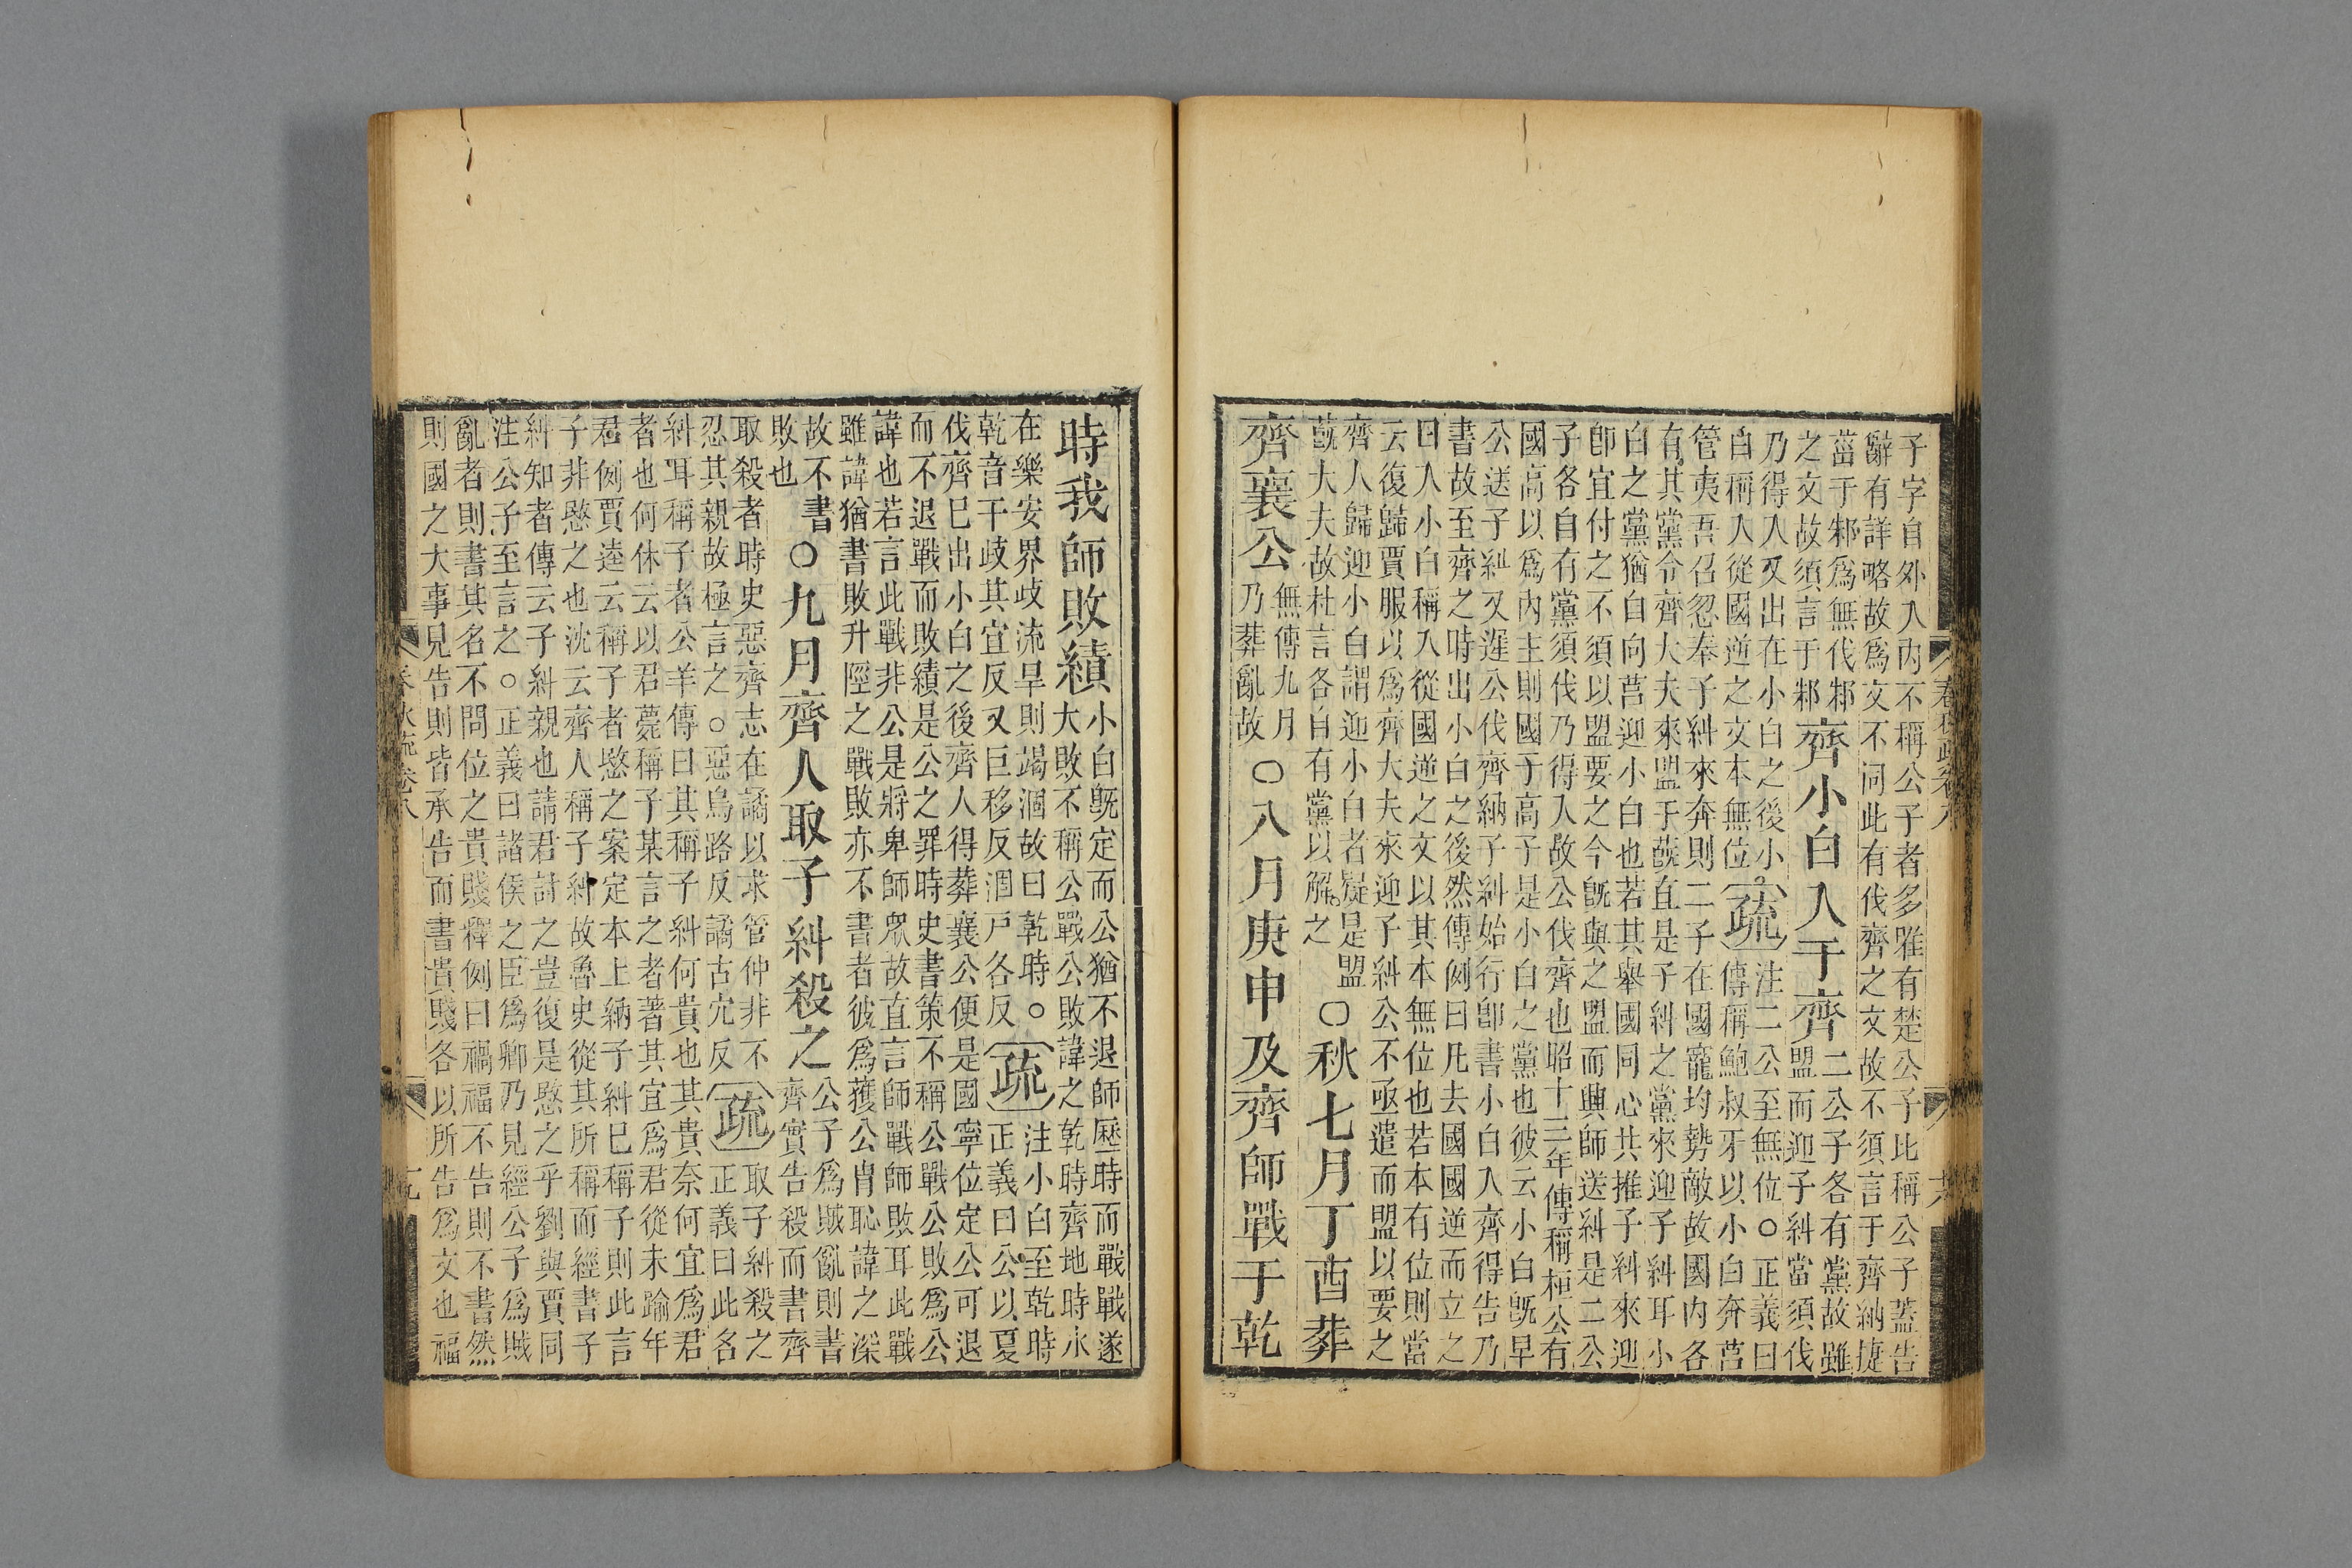 子字自外入內不稱公子者多唯有楚公子比稱公子蓋告
辭有詳略故爲文不同此有伐齊之文故不須言于齊納捷
菑于邾爲無伐邾
之文故須言于邾
齊小白入于齊
二公子各有黨故雖
盟而迎子糾當須伐
乃得入又出在小白之後小
白稱入從國逆之文本無位
疏
注二公至無位○正義曰
傳稱鮑叔牙以小白奔莒
管夷吾召忽奉子糾來奔則二子在國寵均勢敵故國內各
有其黨令齊大夫來盟于蔇直是子糾之黨來迎子糾耳小
白之黨猶自向莒迎小白也若其舉國同心共推子糾來迎
卽宜付之不須以盟要之今旣與之盟而興師送糾是二公
子各自有黨須伐乃得入故公伐齊也昭十三年傳稱桓公有
國高以爲內主則國子高子是小白之黨也彼云小白旣早
公送子糾又遲公伐齊納子糾始行卽書小白入齊得告乃
書故至齊之時出小白之後然傳例曰凡去國國逆而立之
曰入小白稱入從國逆之文以其本無位也若本有位則當
云復歸賈服以爲齊大夫來迎子糾公不亟遣而盟以要之
齊人歸迎小白謂迎小白者疑是盟
蔇大夫故杜言各自有黨以解之
○秋七月丁酉葬
齊襄公
無傳九月
乃葬亂故
○八月庚申及齊師戰于乾
春秋疏卷八
時我師敗績
小白旣定而公猶不退師歷時而戰戰遂
大敗不稱公戰公敗諱之乾時齊地時水
在樂安界歧流旱則竭涸故曰乾時○
乾音干歧其宜反又巨移反涸戶各反
疏
注小白至乾時
正義曰公以夏
伐齊已出小白之後齊人得葬襄公便是國寧位定公可退
而不退戰而敗績是公之罪時史書策不稱公戰公敗爲公
諱也若言此戰非公是將卑師眾故直言師戰師敗耳此戰
雖諱猶書敗升陘之戰敗亦不書者彼爲獲公冑恥諱之深
故不書
敗也
○九月齊人取子糾殺之
公子爲賊亂則書
齊實告殺而書齊
取殺者時史惡齊志在譎以求管仲非不
忍其親故極言之○惡烏路反譎古穴反
疏
取子糾殺之
正義曰此名
糾耳稱子者公羊傳曰其稱子糾何貴也其貴奈何宜爲君
者也何休云以君薨稱子某言之者著其宜爲君從未踰年
君例賈逵云稱子者愍之案定本上納子糾已稱子則此言
子非愍之也沈云齊人稱子糾故魯史從其所稱而經書子
糾知者傳云子糾親也請君討之豈復是愍之乎劉與賈同
注公子至言之○正義曰諸侯之臣爲卿乃見經公子爲賊
亂者則書其名不問位之貴賤釋例曰禍福不告則不書然
則國之大事見告則皆承告而書貴賤各以所告爲文也福
春秋疏卷八